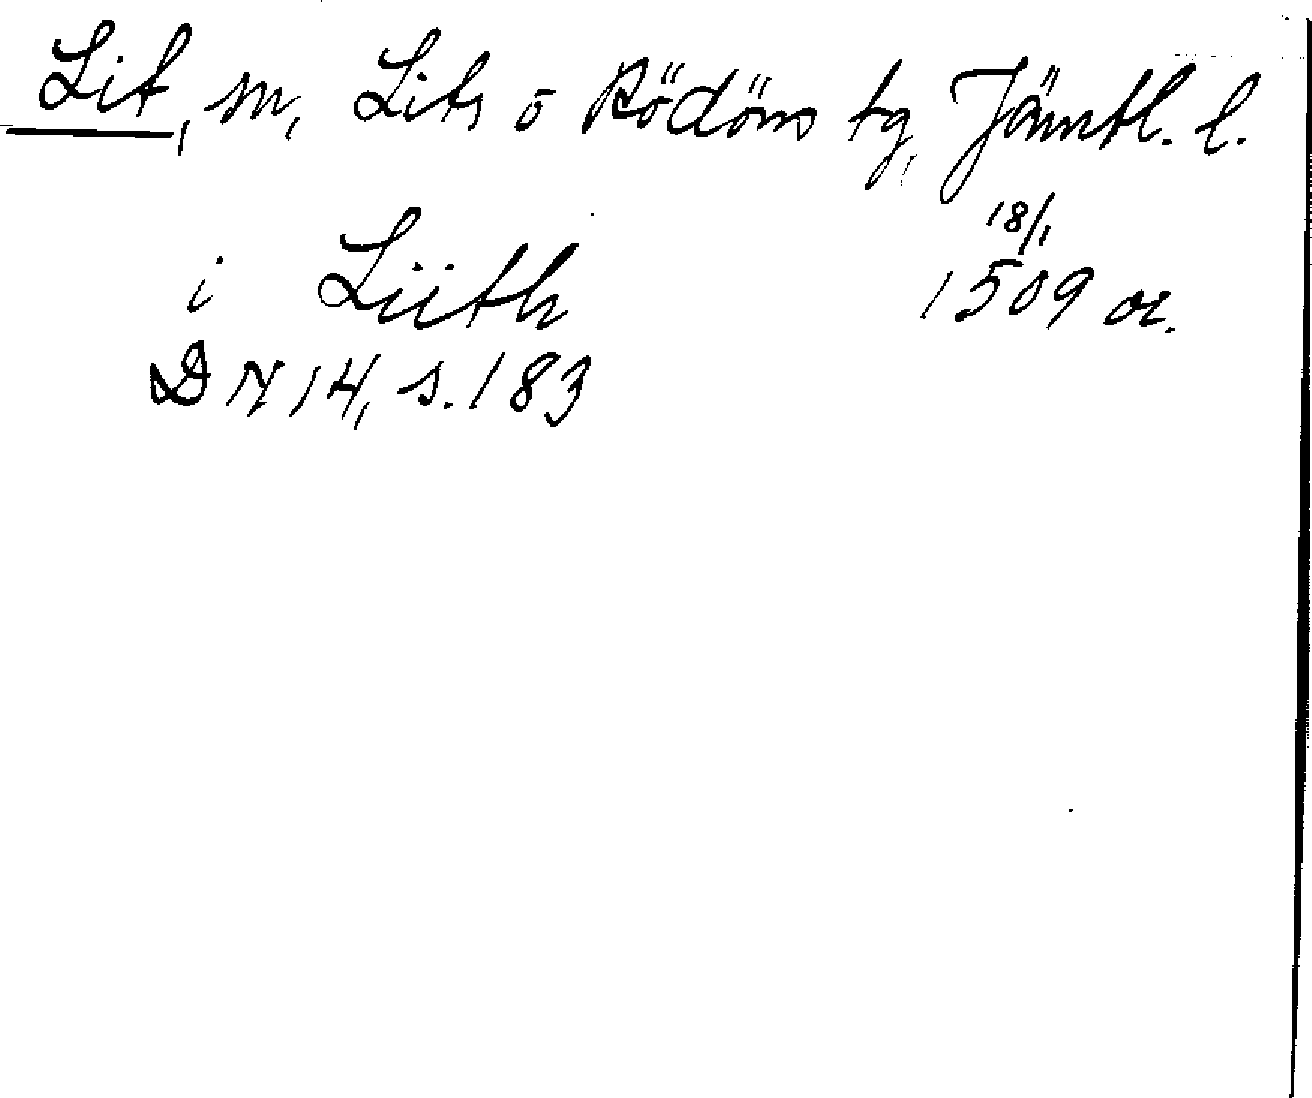 Lit, sn, Lits o Rödöns tg, Jämtl. l.
18/1
i Liith 1509 or.
DN 14, s. 183